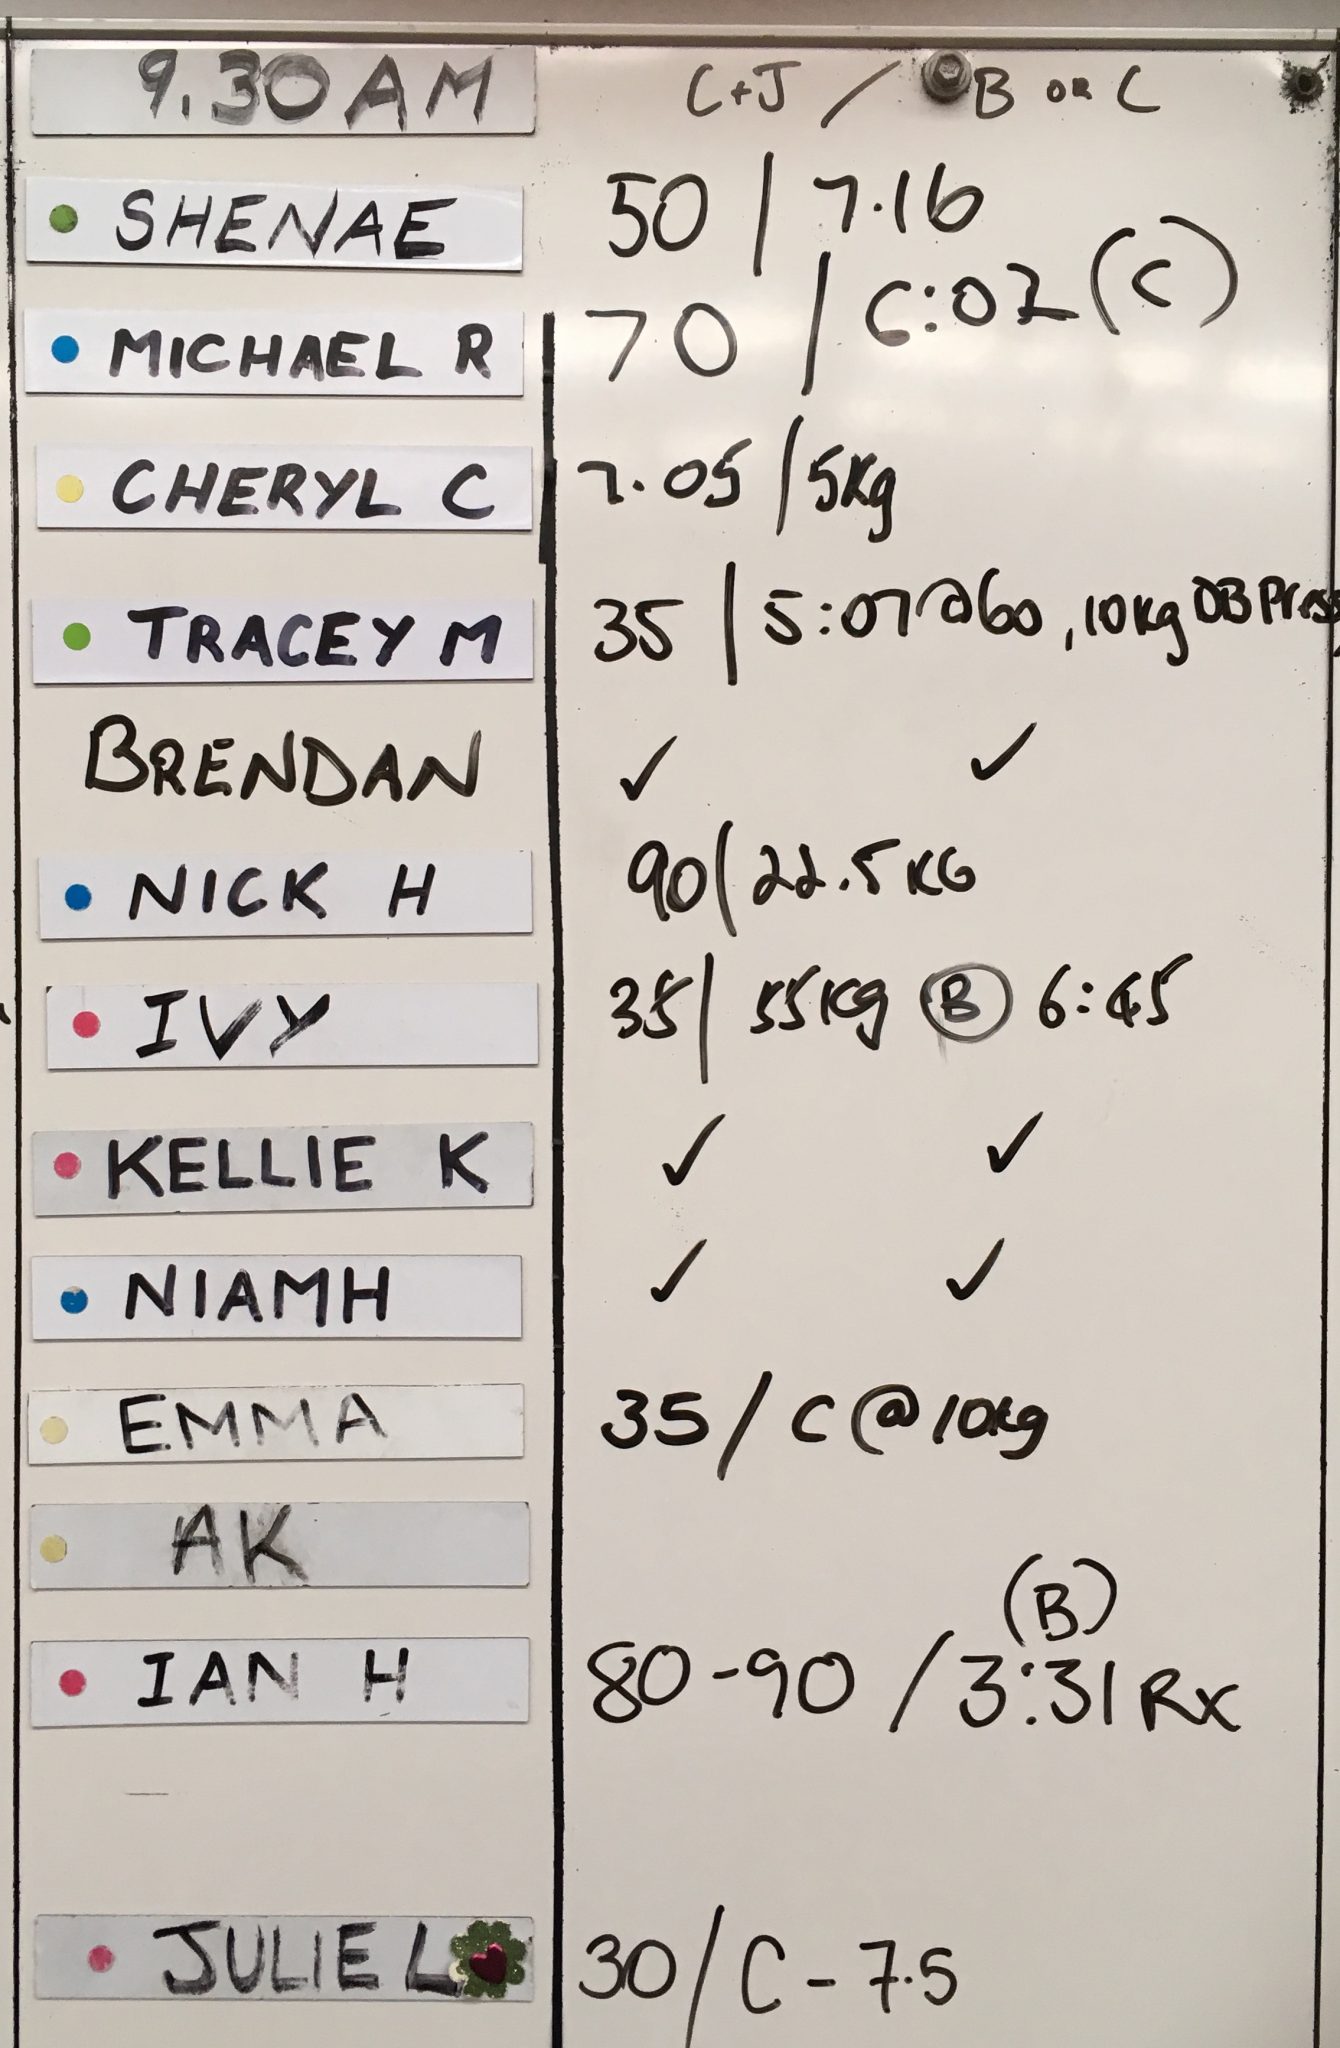 9.30AM C+J / B OR C
SHENAE 50 | 7.16
MICHAEL R 70 / 6:02 (C)
CHERYL C 7.05 / 5Kg
TRACEY M 35 | 5:07@60, 10kg DB Press
BRENDAN ✓ ✓
NICK H 90 | 22.5 KG
IVY 35 | 55Kg B 6:45
KELLIE K ✓ ✓
NIAMH ✓ ✓
EMMA 35 / C @ 10kg
AK
(B)
IAN H 80-90 / 3:31 Rx
JULIE L 30 / C - 7.5